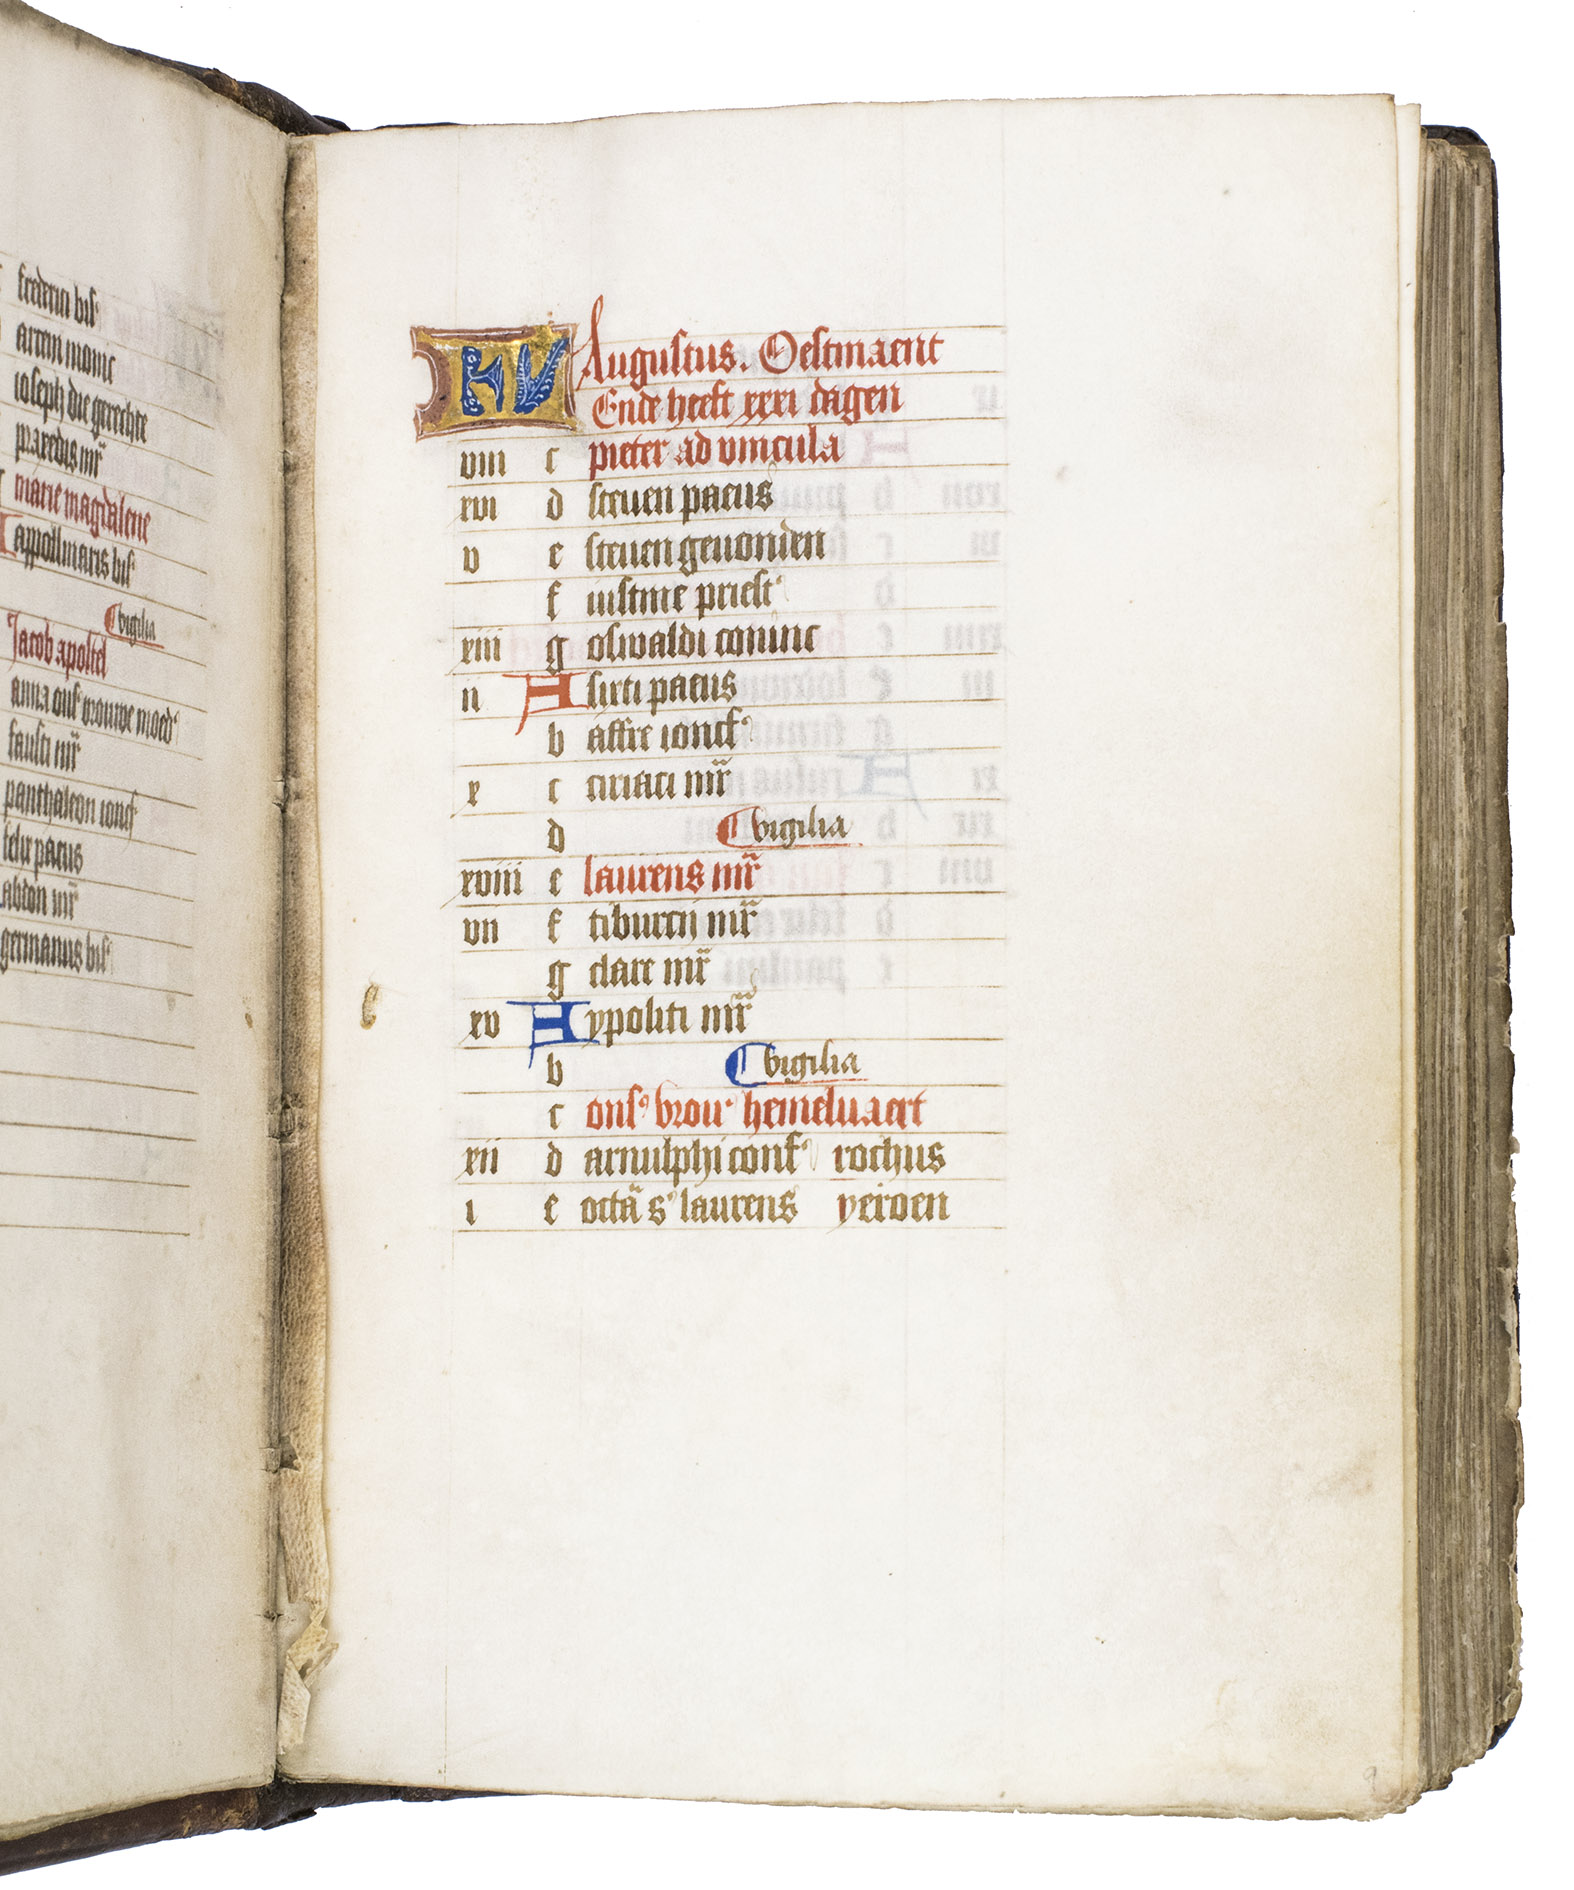 frederici bisʼ
arcen monic
ioseph die gerechte
praxedis mr̄
marie magdalene
appollinaris bisʼ
vigilia
Jacob apostel
anna onsʼ vrouwe moedʼ
fausti mr̄
panthaleon ioncfʼ
felix paeus
abdon mr̄
germanus bisʼ
KL Augustus. Oestmaent
Ende heeft xxxi dagen
viii c pieter ad vincula
xvi d steuen paeus
v e steuen geuonden
f iustine priestʼ
xiii g oswaldi coninc
ii A sixti paeus
b affre ioncfʼ
x c ciriaci mr̄
d vigilia
xviii e laurens mr̄
vii f tiburcij mr̄
g clare mr̄
xv A ypoliti mr̄
b vigilia
c onsʼ vrouʼ hemeluaert
xii d arnulphi confʼ rochus
i e octā sʼ laurens yeroen
9